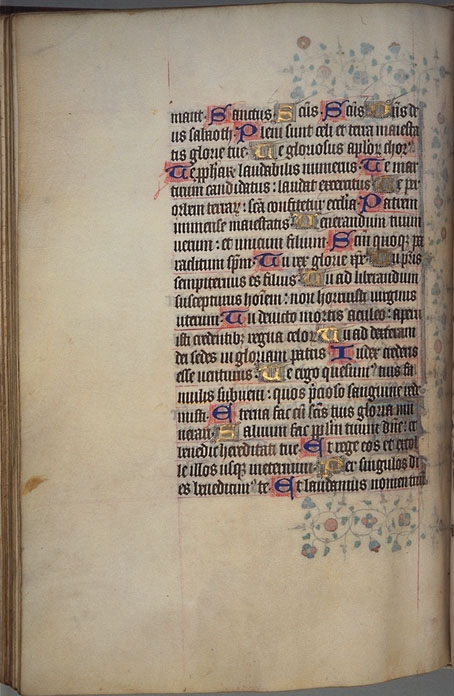 mant. Sanctus Scūs Scūs Dn̄s de
us sabaoth. Pleni sunt celi et terra maiesta
tis glorie tue. Te gloriosus apl'or chor'
Te ꝓphar laudabilis numerus. Te mar
tirum candidatus: laudat exercitus Te per
orbem terrar: scā confitetur eccl'ia. Patrem
immense maiestatis Venerandum tuum
uerum: et unicum filium. Scm̄ quoqꝫ pa
raclitum spm̄. Tu rex glorie xp̄e. Tu pr̄is
sempiternus es filius Tu ad liberandum
suscepturus hoīem: non horruisti uirginis
uterum. Tu deuicto mortis aculeo: aperu
isti credentibꝫ regna celor Tu ad dexteram
dei sedes in gloriam patris Iudex crederis
esse uenturus. Te ergo quesum' tuis fa
mulis subueni: quos p̄cioso sanguine red
misti. Eterna fac cū scīs tuis gloria mu
nerari. Saluum fac pp̄lm̄ tuum dn̄e: et
benedic hereditati tue. Et rege eos et extol
le illos usqꝫ ineternum. Per singulos di
es benedicim' te. Et laudamus nomen tuū